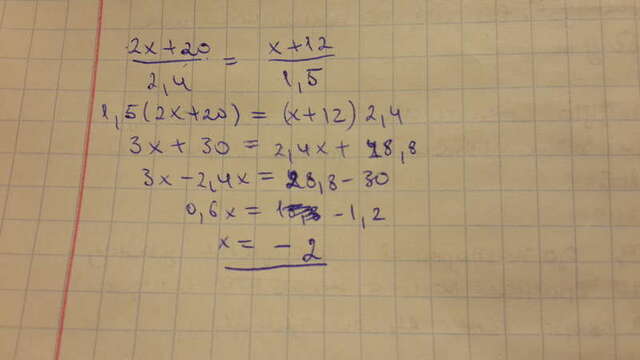 2x+20 / 2,4 = x+12 / 1,5
1,5(2x+20) = (x+12) 2,4
3x + 30 = 2,4x + 28,8
3x - 2,4x = 28,8 - 30
0,6x = -1,2
x = - 2